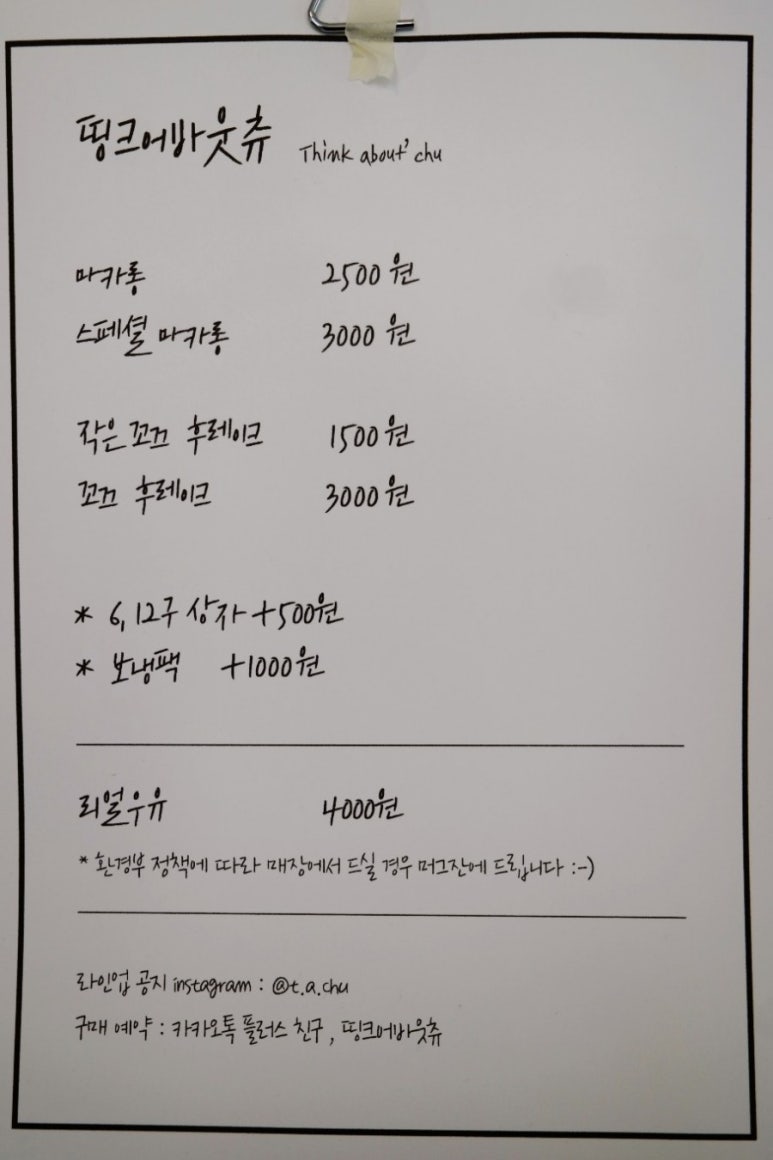 띵크어바웃츄 Think about' chu
마카롱 2500원
스페셜 마카롱 3000원
작은 꼬끄 후레이크 1500원
꼬끄 후레이크 3000원
* 6, 12구 상자 +500원
* 보냉팩 +1000원
리얼우유 4000원
* 환경부 정책에 따라 매장에서 드실 경우 머그잔에 드립니다 :-)
라인업 공지 instagram : @t.a.chu
구매 예약 : 카카오톡 플러스 친구, 띵크어바웃츄